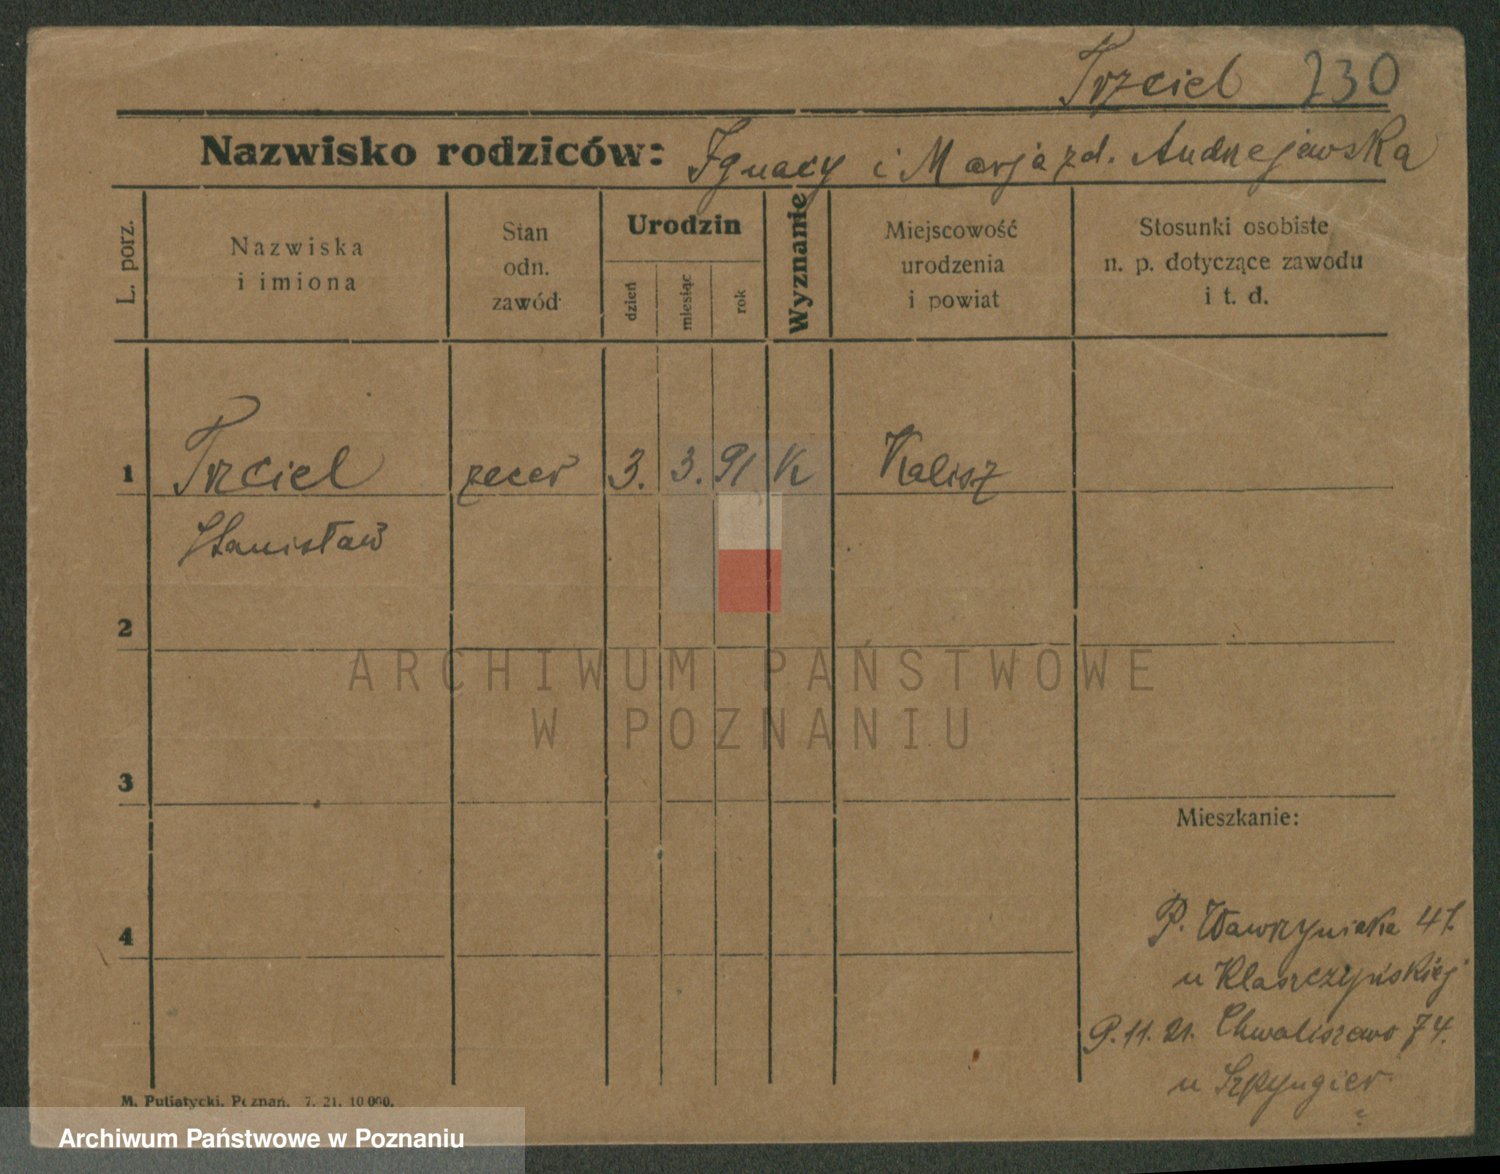 Trzciel 230
Nazwisko rodziców: Ignacy i Marja zd. Andrzejewska
L. porz.
Nazwiska
i imiona
Stan
odn.
zawód
Urodzin
dzień
miesiąc
rok
Wyznanie
Miejscowość
urodzenia
i powiat
Stosunki osobiste
n. p. dotyczące zawodu
i t. d.
1 Trzciel zecer 3. 3. 91 K Kalisz
Stanisław
2
ARCHIWUM PAŃSTWOWE
W POZNANIU
3
Mieszkanie:
4
P. Wawrzyniaka 41.
u Klaszczyńskiej
P. 11. 21. Chwaliszewo 74.
u Szpyngier
M. Putiatycki, Poznań. 7. 21. 10 000.
Archiwum Państwowe w Poznaniu